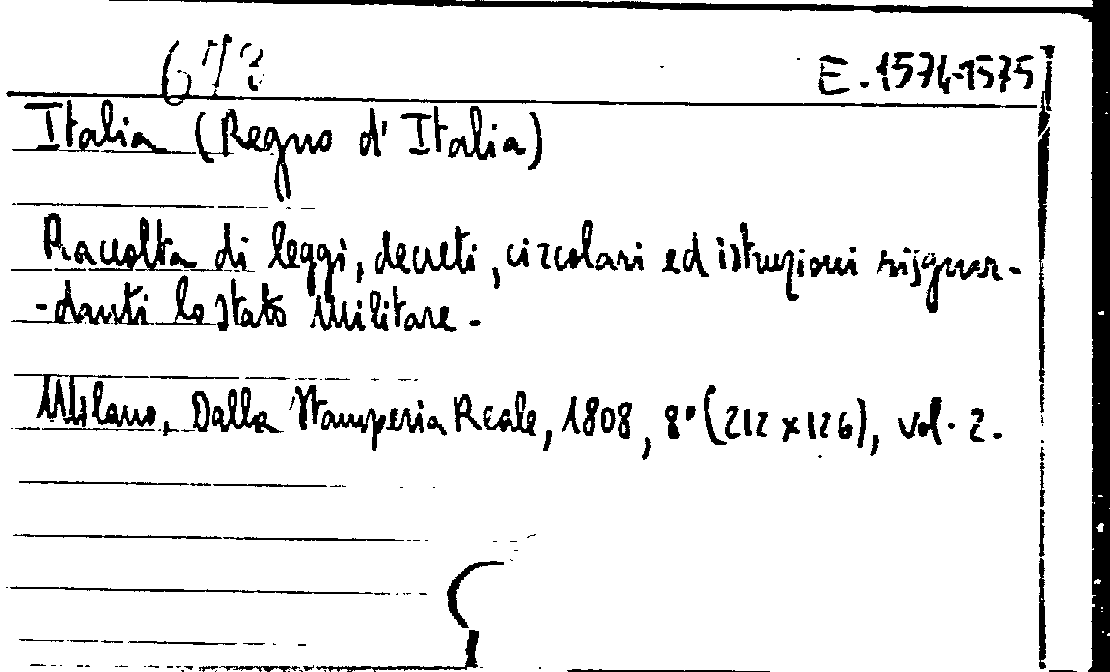 673 E. 1574-1575
Italia (Regno d'Italia)
Raccolta di leggi, decreti, circolari ed istruzioni risguar-
-danti lo Stato Militare.
Milano, Dalla Stamperia Reale, 1808, 8° (212 x 126), vol. 2.